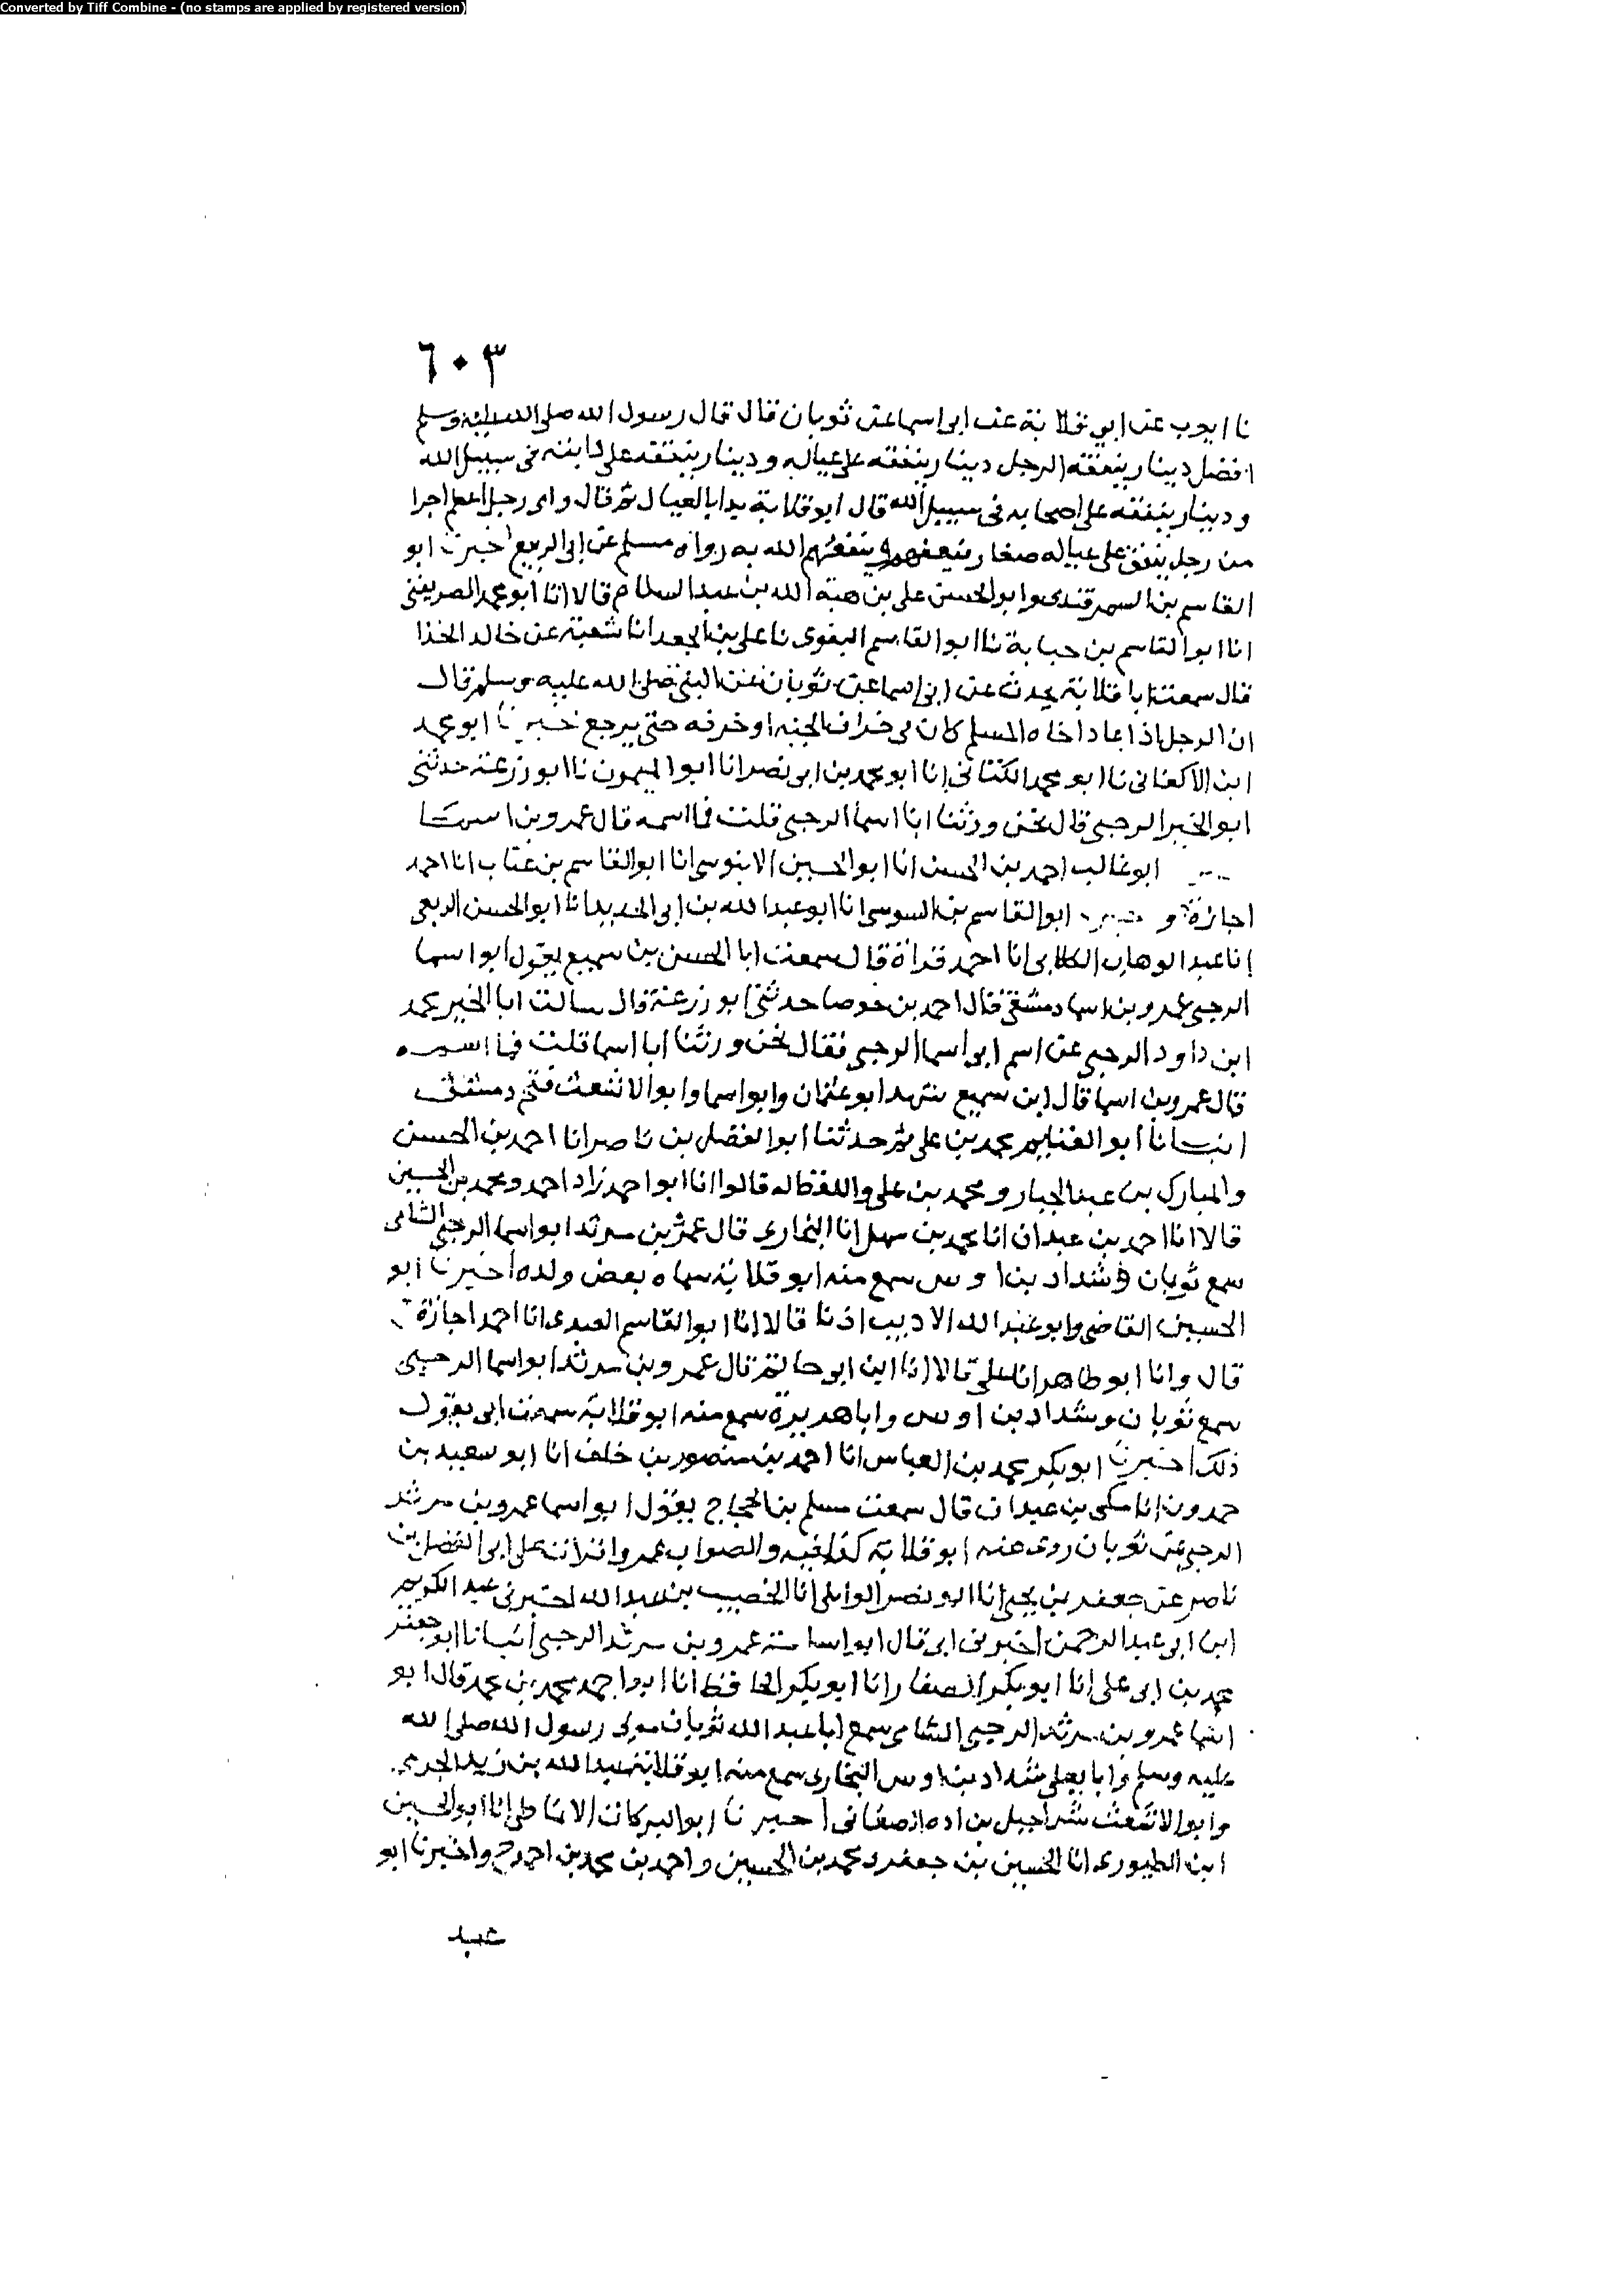 Converted by Tiff Combine - (no stamps are applied by registered version)
٦٠٣
نا ايوب عن ابي قلابة عن ابي اسما عن ثوبان قال قال رسول الله صلى الله عليه وسلم
افضل دينار ينفقه الرجل دينار ينفقه على عياله ودينار ينفقه على دابته في سبيل الله
ودينار ينفقه على اصحابه في سبيل الله قال ابو قلابة بدا بالعيال ثم قال واى رجل اعظم اجرا
من رجل ينفق على عياله صغار يعفهم وينفعهم الله به رواه مسلم عن ابى الربيع اخبرنا ابو
القاسم بن السمرقندى وابو الحسن على بن هبة الله بن عبد السلام قالا انا ابو محمد الصريفينى
انا ابو القاسم بن حبابة نا ابو القاسم البغوى نا على بن الجعد انا شعبة عن خالد الحذا
قال سمعت ابا قلابة يحدث عن ابى اسما عن ثوبان عن النبى صلى الله عليه وسلم قال
ان الرجل اذا عاد اخاه المسلم كان فى خراف الجنه او خرفه حتى يرجع اخبرنا ابو محمد
ابن الاكفانى نا ابو محمد الكتانى انا ابو محمد بن ابى نصر انا ابو الميمون نا ابو زرعة حدثنى
ابو الخير الرحبى قال نحن ورثنا ابا اسما الرحبى قلت فما اسمه قال عمرو بن اسما
ابو غالب احمد بن الحسن انا ابو الحسين الابنوسى انا ابو القاسم بن عتاب انا احمد
اجازة ح و ابو القاسم بن السوسى انا ابو عبد الله بن ابى الحديد انا ابو الحسن الربعى
انا عبد الوهاب الكلابى انا احمد قراة قال سمعت ابا الحسن بن سميع يقول ابو اسما
الرحبى عمرو بن اسما دمشقى قال احمد بن حوصا حدثنى ابو زرعة قال سالت ابا الخير محمد
ابن داود الرحبى عن اسم ابو اسما الرحبى فقال نحن ورثنا ابا اسما قلت فما اسمه
قال عمرو بن اسما قال ابن سميع شهد ابو عثمان وابو اسما وابو الاشعث فتح دمشق
انبانا ابو الغنايم محمد بن على ثم حدثنا ابو الفضل بن ناصر انا احمد بن الحسن
والمبارك بن عبد الجبار ومحمد بن على واللفظ له قالوا انا ابو احمد زاد احمد ومحمد بن الحسين
قالا انا احمد بن عبدان انا محمد بن سهل انا البخارى قال عمرو بن مرثد ابو اسما الرحبى الشامى
سمع ثوبان وشداد بن اوس سمع منه ابو قلابة سماه بعض ولده اخبرنا ابو
الحسين القاضى وابو عبد الله الاديب اذنا قالا انا ابو القاسم العبدى انا احمد اجازة ح
قال وانا ابو طاهر انا على قالا انا ابن ابو حاتم قال عمرو بن مرثد ابو اسما الرحبى
سمع ثوبان وشداد بن اوس وابا هريرة سمع منه ابو قلابة سمعت ابى يقول
ذلك اخبرنا ابو بكر محمد بن العباس انا احمد بن منصور بن خلف انا ابو سعيد بن
حمدون انا مكى بن عبدان قال سمعت مسلم بن الحجاج يقول ابو اسما عمرو بن مرثد
الرحبى عن ثوبان روى عنه ابو قلابة كذا فيه والصواب عمرو قرات على ابى الفضل بن
ناصر عن جعفر بن يحيى انا ابو نصر الوايلى انا الخصيب بن عبد الله اخبرنى عبد الكريم
ابن ابو عبد الرحمن اخبرنى ابى قال ابو اسما عمرو بن مرثد الرحبى انبانا ابو جعفر
محمد بن ابى على انا ابو بكر الصفار انا ابو بكر الحافظ انا ابو احمد محمد بن محمد قال ابو
اسما عمرو بن مرثد الرحبى الشامى سمع ابا عبد الله ثوبان مولى رسول الله صلى الله
عليه وسلم وابا يعلى شداد بن اوس البخارى سمع منه ابو قلابة عبد الله بن زيد الجرمى
وابو الاشعث شراحيل بن اده الصنعانى اخبرنا ابو البركات الانماطى انا ابو الحسين
ابن الطيورى انا الحسين بن جعفر ومحمد بن الحسين واحمد بن محمد بن احمد ح واخبرنا ابو
عبد